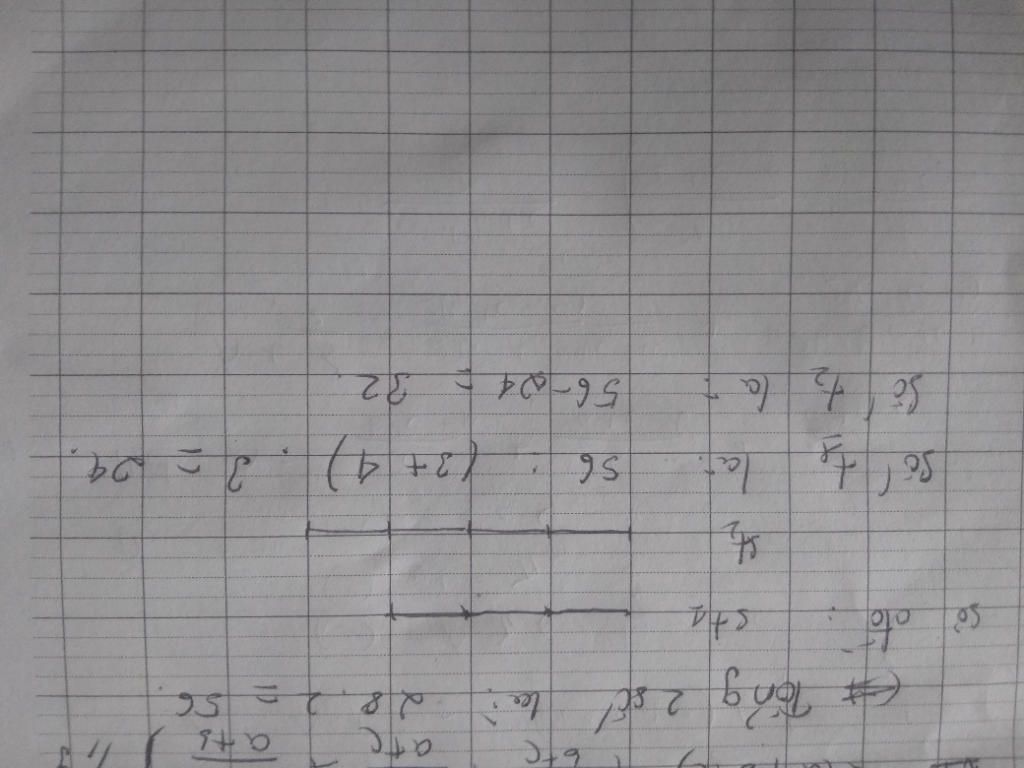 Tổng 2 số là: 28 . 2 = 56.
Số đó: st1
st2
Số t1 là: 56 : (3 + 4) . 3 = 24.
Số t2 là: 56 - 24 = 32.